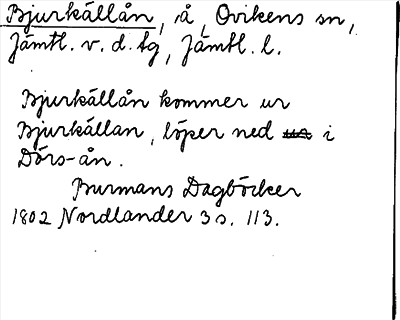 Bjurkällån, å, Ovikens sn,
Jämtl. v. d. tg, Jämtl. l.
Bjurkällån kommer ur
Bjurkällan, löper ned i
Dörs-ån.
Burmans Dagböcker
1802 Nordlander 3 s. 113.